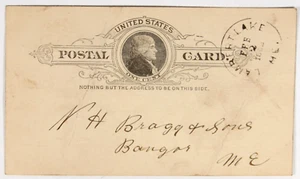 UNITED STATES
POSTAL CARD
ONE CENT
NOTHING BUT THE ADDRESS TO BE ON THIS SIDE.
FEB
2
ME
N H Bragg & Sons
Bangor
ME